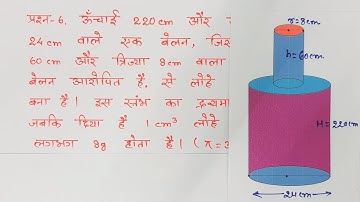 प्रश्न-6. ऊँचाई 220cm और
24cm वाले एक बेलन, जिस
60cm और त्रिज्या 8cm वाला
बेलन आरोपित है, से लोहे
बना है। इस स्तंभ का द्रव्यमा
जबकि दिया है 1cm³ लोहे
लगभग 8g होता है। (π=3
r=8cm
h=60cm
H=220cm
24cm